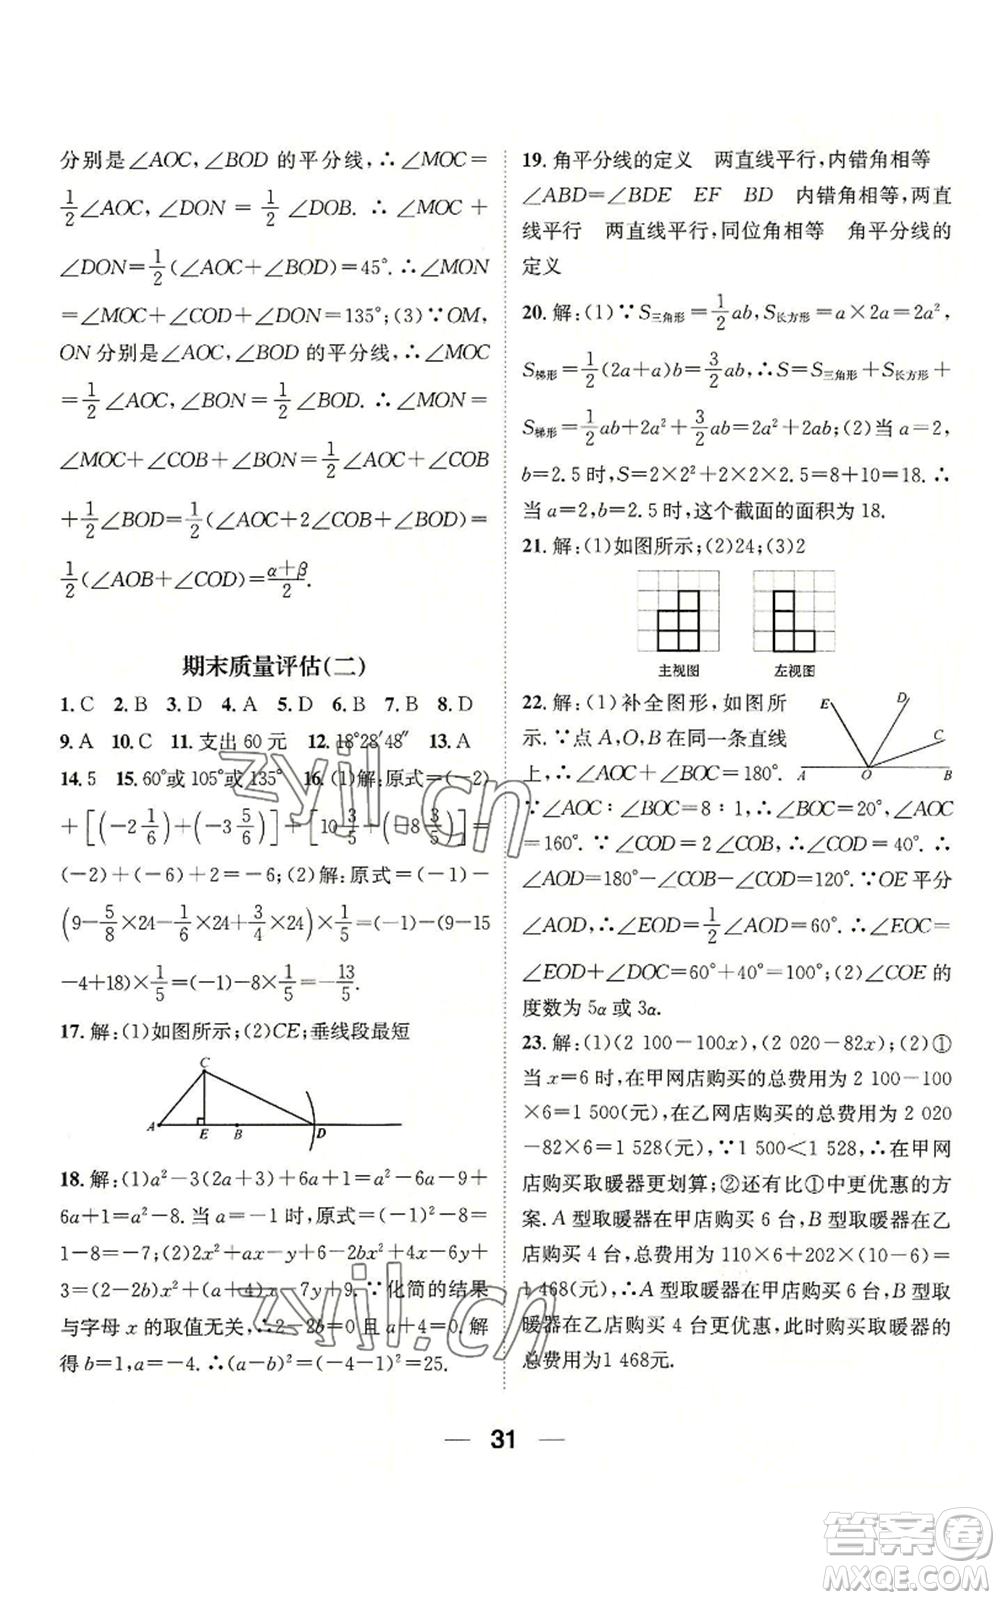 分别是∠AOC,∠BOD 的平分线,∴∠MOC=
1/2∠AOC,∠DON=1/2∠DOB. ∴∠MOC+
∠DON=1/2(∠AOC+∠BOD)=45°. ∴∠MON
=∠MOC+∠COD+∠DON=135°;(3)∵OM,
ON 分别是∠AOC,∠BOD 的平分线,∴∠MOC
=1/2∠AOC,∠BON=1/2∠BOD. ∴∠MON=
∠MOC+∠COB+∠BON=1/2∠AOC+∠COB
+1/2∠BOD=1/2(∠AOC+2∠COB+∠BOD)=
1/2(∠AOB+∠COD)=(α+β)/2.
期末质量评估(二)
1. C 2. B 3. D 4. A 5. D 6. B 7. B 8. D
9. A 10. C 11. 支出 60 元 12. 18°28′48″ 13. A
14. 5 15. 60°或 105°或 135° 16. (1)解:原式=(-2)
+[(-2 1/6)+(-3 5/6)]+[10 3/5+(-8 3/5)]=
(-2)+(-6)+2=-6;(2)解:原式=(-1)-
(9-5/8×24-1/6×24+3/4×24)×1/5=(-1)-(9-15
-4+18)×1/5=(-1)-8/5=-13/5
17. 解:(1)如图所示;(2)CE;垂线段最短
C
A E B D
18. 解:(1)a²-3(2a+3)+6a+1=a²-6a-9+
6a+1=a²-8. 当 a=-1 时,原式=(-1)²-8=
1-8=-7;(2)2x²+ax-y+6-2bx²+4x-6y+
3=(2-2b)x²+(a+4)x-7y+9. ∵化简的结果
与字母 x 的取值无关,∴2-2b=0 且 a+4=0. 解
得 b=1,a=-4. ∴(a-b)²=(-4-1)²=25.
19. 角平分线的定义 两直线平行,内错角相等
∠ABD=∠BDE EF BD 内错角相等,两直
线平行 两直线平行,同位角相等 角平分线的
定义
20. 解:(1)∵S三角形=1/2ab,S长方形=a×2a=2a²,
S梯形=1/2(2a+a)b=3/2ab,∴S=S三角形+S长方形+
S梯形=1/2ab+2a²+3/2ab=2a²+2ab;(2)当 a=2,
b=2.5 时,S=2×2²+2×2×2.5=8+10=18. ∴
当 a=2,b=2.5 时,这个截面的面积为 18.
21. 解:(1)如图所示;(2)24;(3)2
主视图 左视图
22. 解:(1)补全图形,如图所
示. ∵点 A,O,B 在同一条直线
上,∴∠AOC+∠BOC=180°.
E D C A O B
∵∠AOC∶∠BOC=8∶1,∴∠BOC=20°,∠AOC
=160°. ∵∠COD=2∠COB,∴∠COD=40°. ∴
∠AOD=180°-∠COB-∠COD=120°. ∵OE 平分
∠AOD,∴∠EOD=1/2∠AOD=60°. ∴∠EOC=
∠EOD+∠DOC=60°+40°=100°;(2)∠COE 的
度数为 5α 或 3α.
23. 解:(1)(2 100-100x),(2 020-82x);(2)①
当 x=6 时,在甲网店购买的总费用为 2 100-100
×6=1 500(元),在乙网店购买的总费用为 2 020
-82×6=1 528(元),∵1 500<1 528,∴在甲网
店购买取暖器更划算;②设比①中更优惠的方
案. A 型取暖器在甲店购买 6 台,B 型取暖器在乙
店购买 4 台,总费用为 110×6+202×(10-6)=
1 468(元),∴A 型取暖器在甲店购买 6 台,B 型取
暖器在乙店购买 4 台更优惠,此时购买取暖器的
总费用为1 468元.
31
zyjl.cn
zyjl.cn
答案卷
MXQE.COM